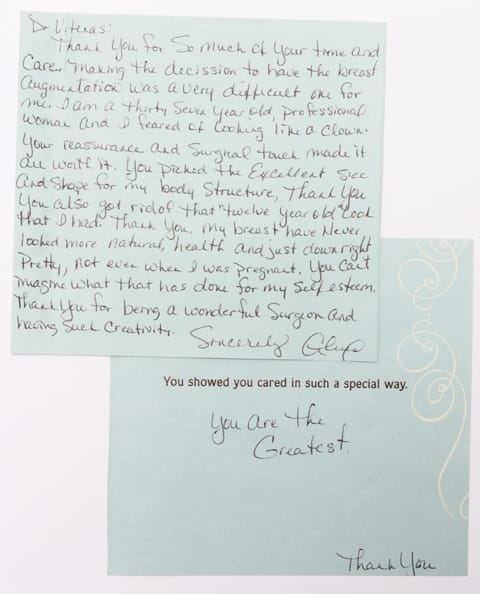 Dr Viteras:
Thank You for So much of Your time and
Care. Making the decission to have the breast
augmentation was a very difficult one for
me. I am a thirty Seven Year old, professional
woman and I feared of looking like a Clown.
Your reassurance and Surgical touch made it
all worth it. You picked the Excellent size
And Shape for my body Structure, Thank You
You also got rid of that "twelve year old" look
that I had. Thank You. My breast have Never
looked more natural, health and just down right
Pretty, not even when I was pregnant. You can't
imagine what that has done for my Self esteem.
Thank You for being a wonderful Surgeon And
having Such Creativity.
Sincerely
You showed you cared in such a special way.
You Are the
Greatest.
Thank You